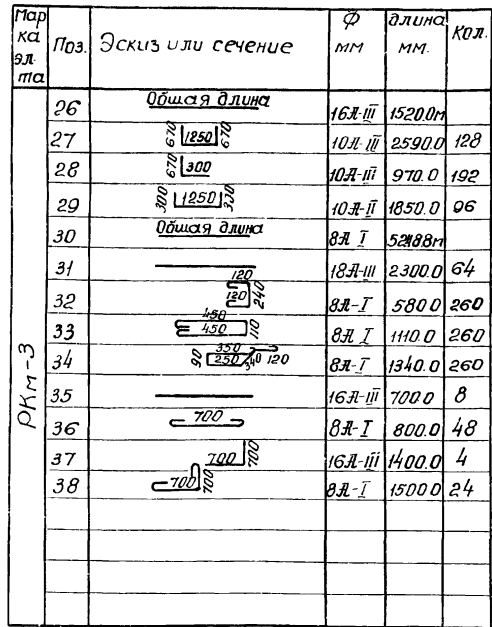 Мар ка эл-та Поз. Эскиз или сечение Ф мм длина мм. Кол.
РКм-3
26 Общая длина 16А-III 1520.0м
27 670 1250 670 10А-III 2590.0 128
28 670 300 10А-III 970.0 192
29 300 1250 300 10А-II 1850.0 96
30 Общая длина 8А I
31 18А-III 2300.0 64
32 120 120 240 8А-I 580.0 260
33 450 450 110 8А I 1110.0 260
34 90 350 250 340 120 8А-I 1340.0 260
35 16А-III 700.0 8
36 700 8А-I 800.0 48
37 700 700 16А-III 1400.0 4
38 700 700 8А-I 1500.0 24